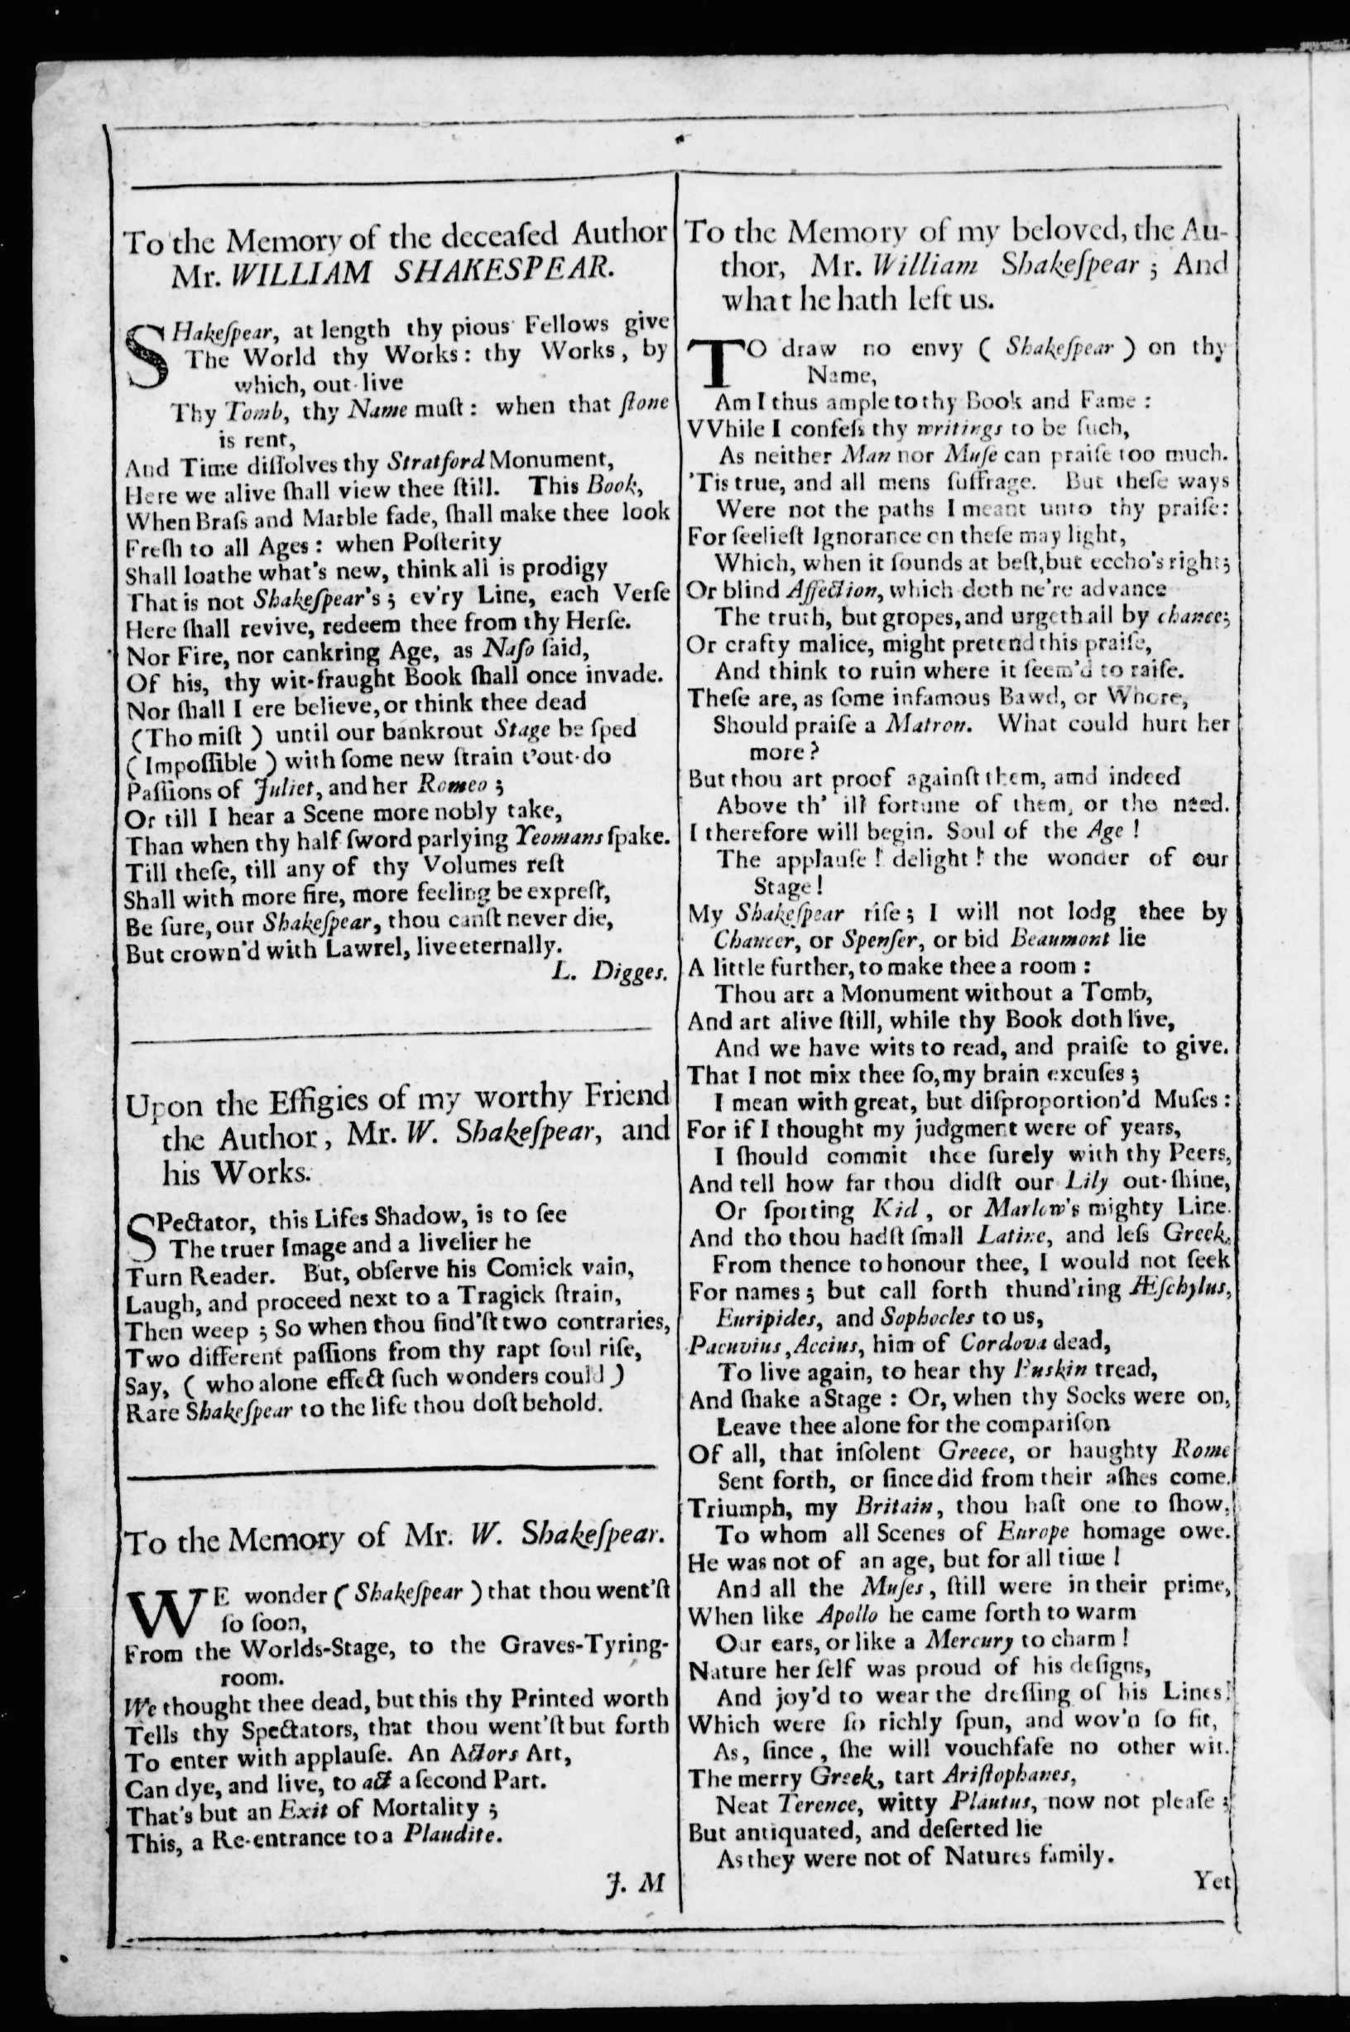 To the Memory of the deceaſed Author
Mr. WILLIAM SHAKESPEAR.
SHakeſpear, at length thy pious Fellows give
The World thy Works: thy Works, by
which, out-live
Thy Tomb, thy Name muſt: when that ſtone
is rent,
And Time diſſolves thy Stratford Monument,
Here we alive ſhall view thee ſtill. This Book,
When Braſs and Marble fade, ſhall make thee look
Freſh to all Ages: when Poſterity
Shall loathe what's new, think all is prodigy
That is not Shakeſpear's; ev'ry Line, each Verſe
Here ſhall revive, redeem thee from thy Herſe.
Nor Fire, nor cankring Age, as Naſo ſaid,
Of his, thy wit-fraught Book ſhall once invade.
Nor ſhall I ere believe, or think thee dead
(Tho miſt) until our bankrout Stage be ſped
(Impoſſible) with ſome new ſtrain t'out-do
Paſſions of Juliet, and her Romeo;
Or till I hear a Scene more nobly take,
Than when thy half ſword parlying Yeomans ſpake.
Till theſe, till any of thy Volumes reſt
Shall with more fire, more feeling be expreſt,
Be ſure, our Shakeſpear, thou canſt never die,
But crown'd with Lawrel, live eternally.
L. Digges.
Upon the Effigies of my worthy Friend
the Author, Mr. W. Shakeſpear, and
his Works.
SPectator, this Lifes Shadow, is to ſee
The truer Image and a livelier he
Turn Reader. But, obſerve his Comick vain,
Laugh, and proceed next to a Tragick ſtrain,
Then weep; So when thou find'ſt two contraries,
Two different paſſions from thy rapt ſoul riſe,
Say, (who alone effect ſuch wonders could)
Rare Shakeſpear to the life thou doſt behold.
To the Memory of Mr. W. Shakeſpear.
WE wonder (Shakeſpear) that thou went'ſt
ſo ſoon,
From the Worlds-Stage, to the Graves-Tyring-
room.
We thought thee dead, but this thy Printed worth
Tells thy Spectators, that thou went'ſt but forth
To enter with applauſe. An Actors Art,
Can dye, and live, to act a ſecond Part.
That's but an Exit of Mortality;
This, a Re-entrance to a Plaudite.
J. M
To the Memory of my beloved, the Au-
thor, Mr. William Shakeſpear; And
what he hath left us.
TO draw no envy (Shakeſpear) on thy
Name,
Am I thus ample to thy Book and Fame:
VVhile I confeſs thy writings to be ſuch,
As neither Man nor Muſe can praiſe too much.
'Tis true, and all mens ſuffrage. But theſe ways
Were not the paths I meant unto thy praiſe:
For ſeelieſt Ignorance on theſe may light,
Which, when it ſounds at beſt, but eccho's right;
Or blind Affection, which doth ne're advance
The truth, but gropes, and urgeth all by chance;
Or crafty malice, might pretend this praiſe,
And think to ruin where it ſeem'd to raiſe.
Theſe are, as ſome infamous Bawd, or Whore,
Should praiſe a Matron. What could hurt her
more?
But thou art proof againſt them, amd indeed
Above th' ill fortune of them, or tho need.
I therefore will begin. Soul of the Age!
The applauſe! delight! the wonder of our
Stage!
My Shakeſpear riſe; I will not lodg thee by
Chaucer, or Spenſer, or bid Beaumont lie
A little further, to make thee a room:
Thou art a Monument without a Tomb,
And art alive ſtill, while thy Book doth live,
And we have wits to read, and praiſe to give.
That I not mix thee ſo, my brain excuſes;
I mean with great, but diſproportion'd Muſes:
For if I thought my judgment were of years,
I ſhould commit thee ſurely with thy Peers,
And tell how far thou didſt our Lily out-ſhine,
Or ſporting Kid, or Marlow's mighty Line.
And tho thou hadſt ſmall Latine, and leſs Greek,
From thence to honour thee, I would not ſeek
For names; but call forth thund'ring Æſchylus,
Euripides, and Sophocles to us,
Pacuvius, Accius, him of Cordova dead,
To live again, to hear thy Buskin tread,
And ſhake a Stage: Or, when thy Socks were on,
Leave thee alone for the compariſon
Of all, that inſolent Greece, or haughty Rome
Sent forth, or ſince did from their aſhes come.
Triumph, my Britain, thou haſt one to ſhow,
To whom all Scenes of Europe homage owe.
He was not of an age, but for all time!
And all the Muſes, ſtill were in their prime,
When like Apollo he came forth to warm
Our ears, or like a Mercury to charm!
Nature her ſelf was proud of his deſigns,
And joy'd to wear the dreſſing of his Lines!
Which were ſo richly ſpun, and wov'n ſo fit,
As, ſince, ſhe will vouchſafe no other wit.
The merry Greek, tart Ariſtophanes,
Neat Terence, witty Plautus, now not pleaſe;
But antiquated, and deſerted lie
As they were not of Natures family.
Yet